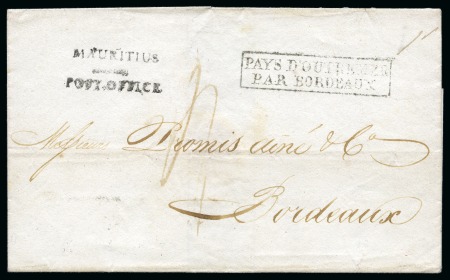 MAURITIUS
POST-OFFICE
PAYS D'OUTREMER
PAR BORDEAUX
Messieurs Promis ainé & Co
Bordeaux